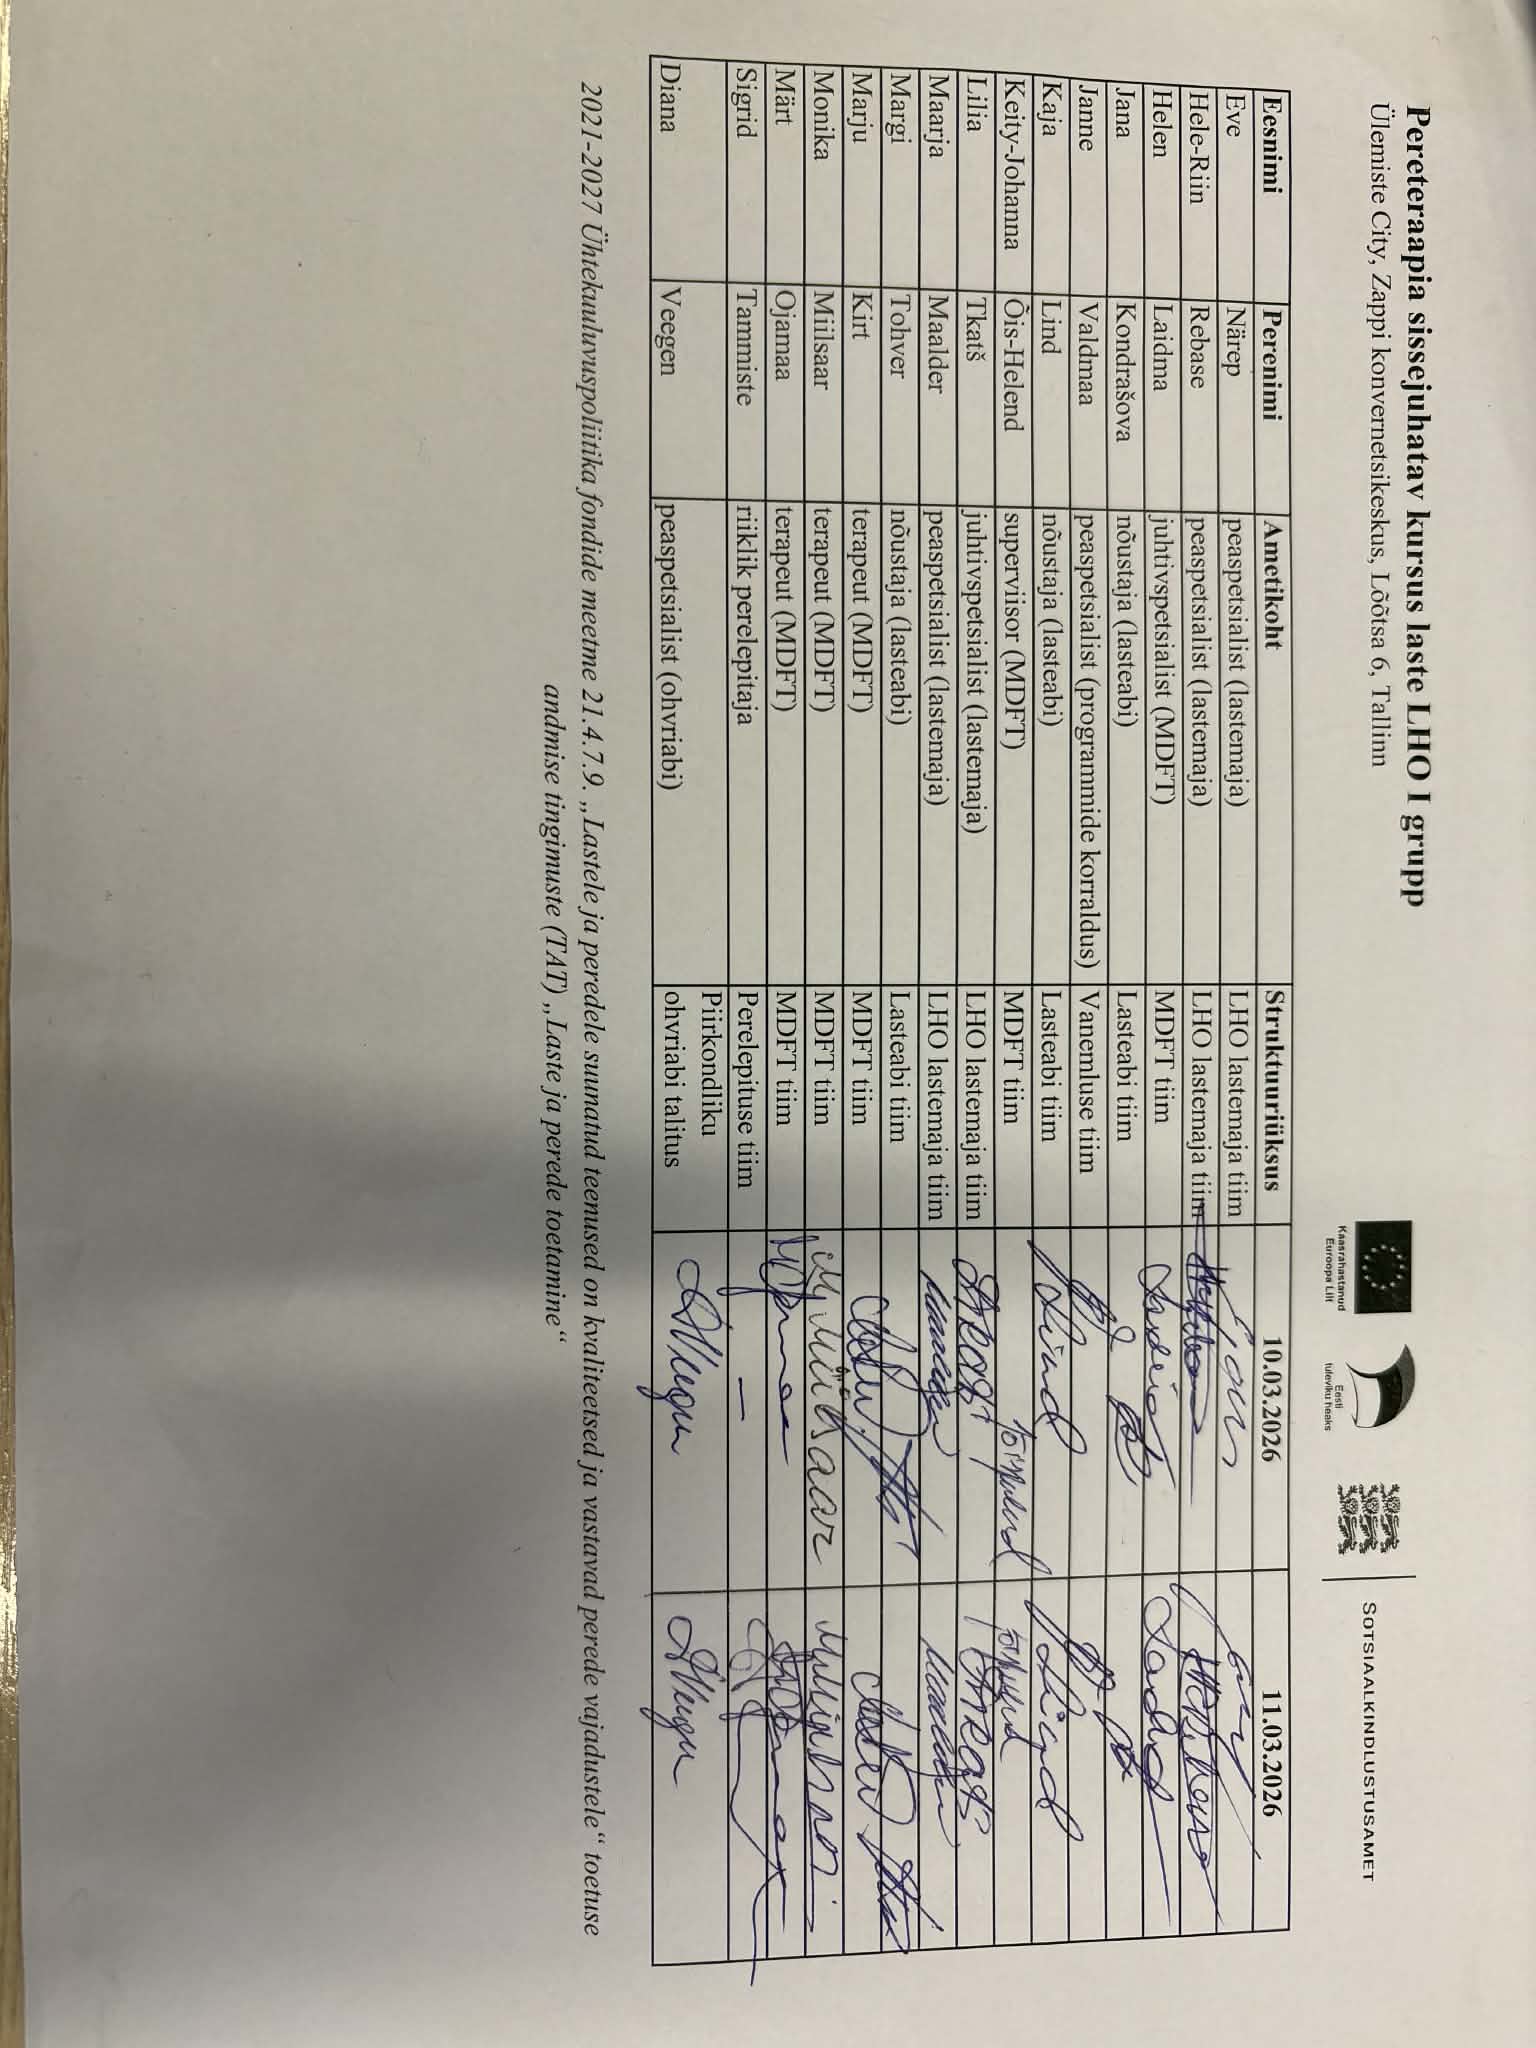 Pereteraapia sissejuhatav kursus laste LHO I grupp
Ülemiste City, Zappi konvernetsikeskus, Lõõtsa 6, Tallinn
Kaasrahastanud
Euroopa Liit
Eesti
tuleviku heaks
SOTSIAALKINDLUSTUSAMET
Eesnimi Perenimi Ametikoht Struktuuriüksus 10.03.2026 11.03.2026
Eve Närep peaspetsialist (lastemaja) LHO lastemaja tiim
Hele-Riin Rebase peaspetsialist (lastemaja) LHO lastemaja tiim
Helen Laidma juhtivspetsialist (MDFT) MDFT tiim
Jana Kondrašova nõustaja (lasteabi) Lasteabi tiim
Janne Valdmaa peaspetsialist (programmide korraldus) Vanemluse tiim
Kaja Lind nõustaja (lasteabi) Lasteabi tiim
Keity-Johanna Õis-Helend superviisor (MDFT) MDFT tiim
Lilia Tkatš juhtivspetsialist (lastemaja) LHO lastemaja tiim
Maarja Maalder peaspetsialist (lastemaja) LHO lastemaja tiim
Margi Tohver nõustaja (lasteabi) Lasteabi tiim
Marju Kirt terapeut (MDFT) MDFT tiim
Monika Miilsaar terapeut (MDFT) MDFT tiim
Märt Ojamaa terapeut (MDFT) MDFT tiim
Sigrid Tammiste riiklik perelepitaja Perelepituse tiim –
Diana Veegen peaspetsialist (ohvriabi) Piirkondliku
ohvriabi talitus
2021-2027 Ühtekuuluvuspoliitika fondide meetme 21.4.7.9. „Lastele ja peredele suunatud teenused on kvaliteetsed ja vastavad perede vajadustele“ toetuse
andmise tingimuste (TAT) „Laste ja perede toetamine“